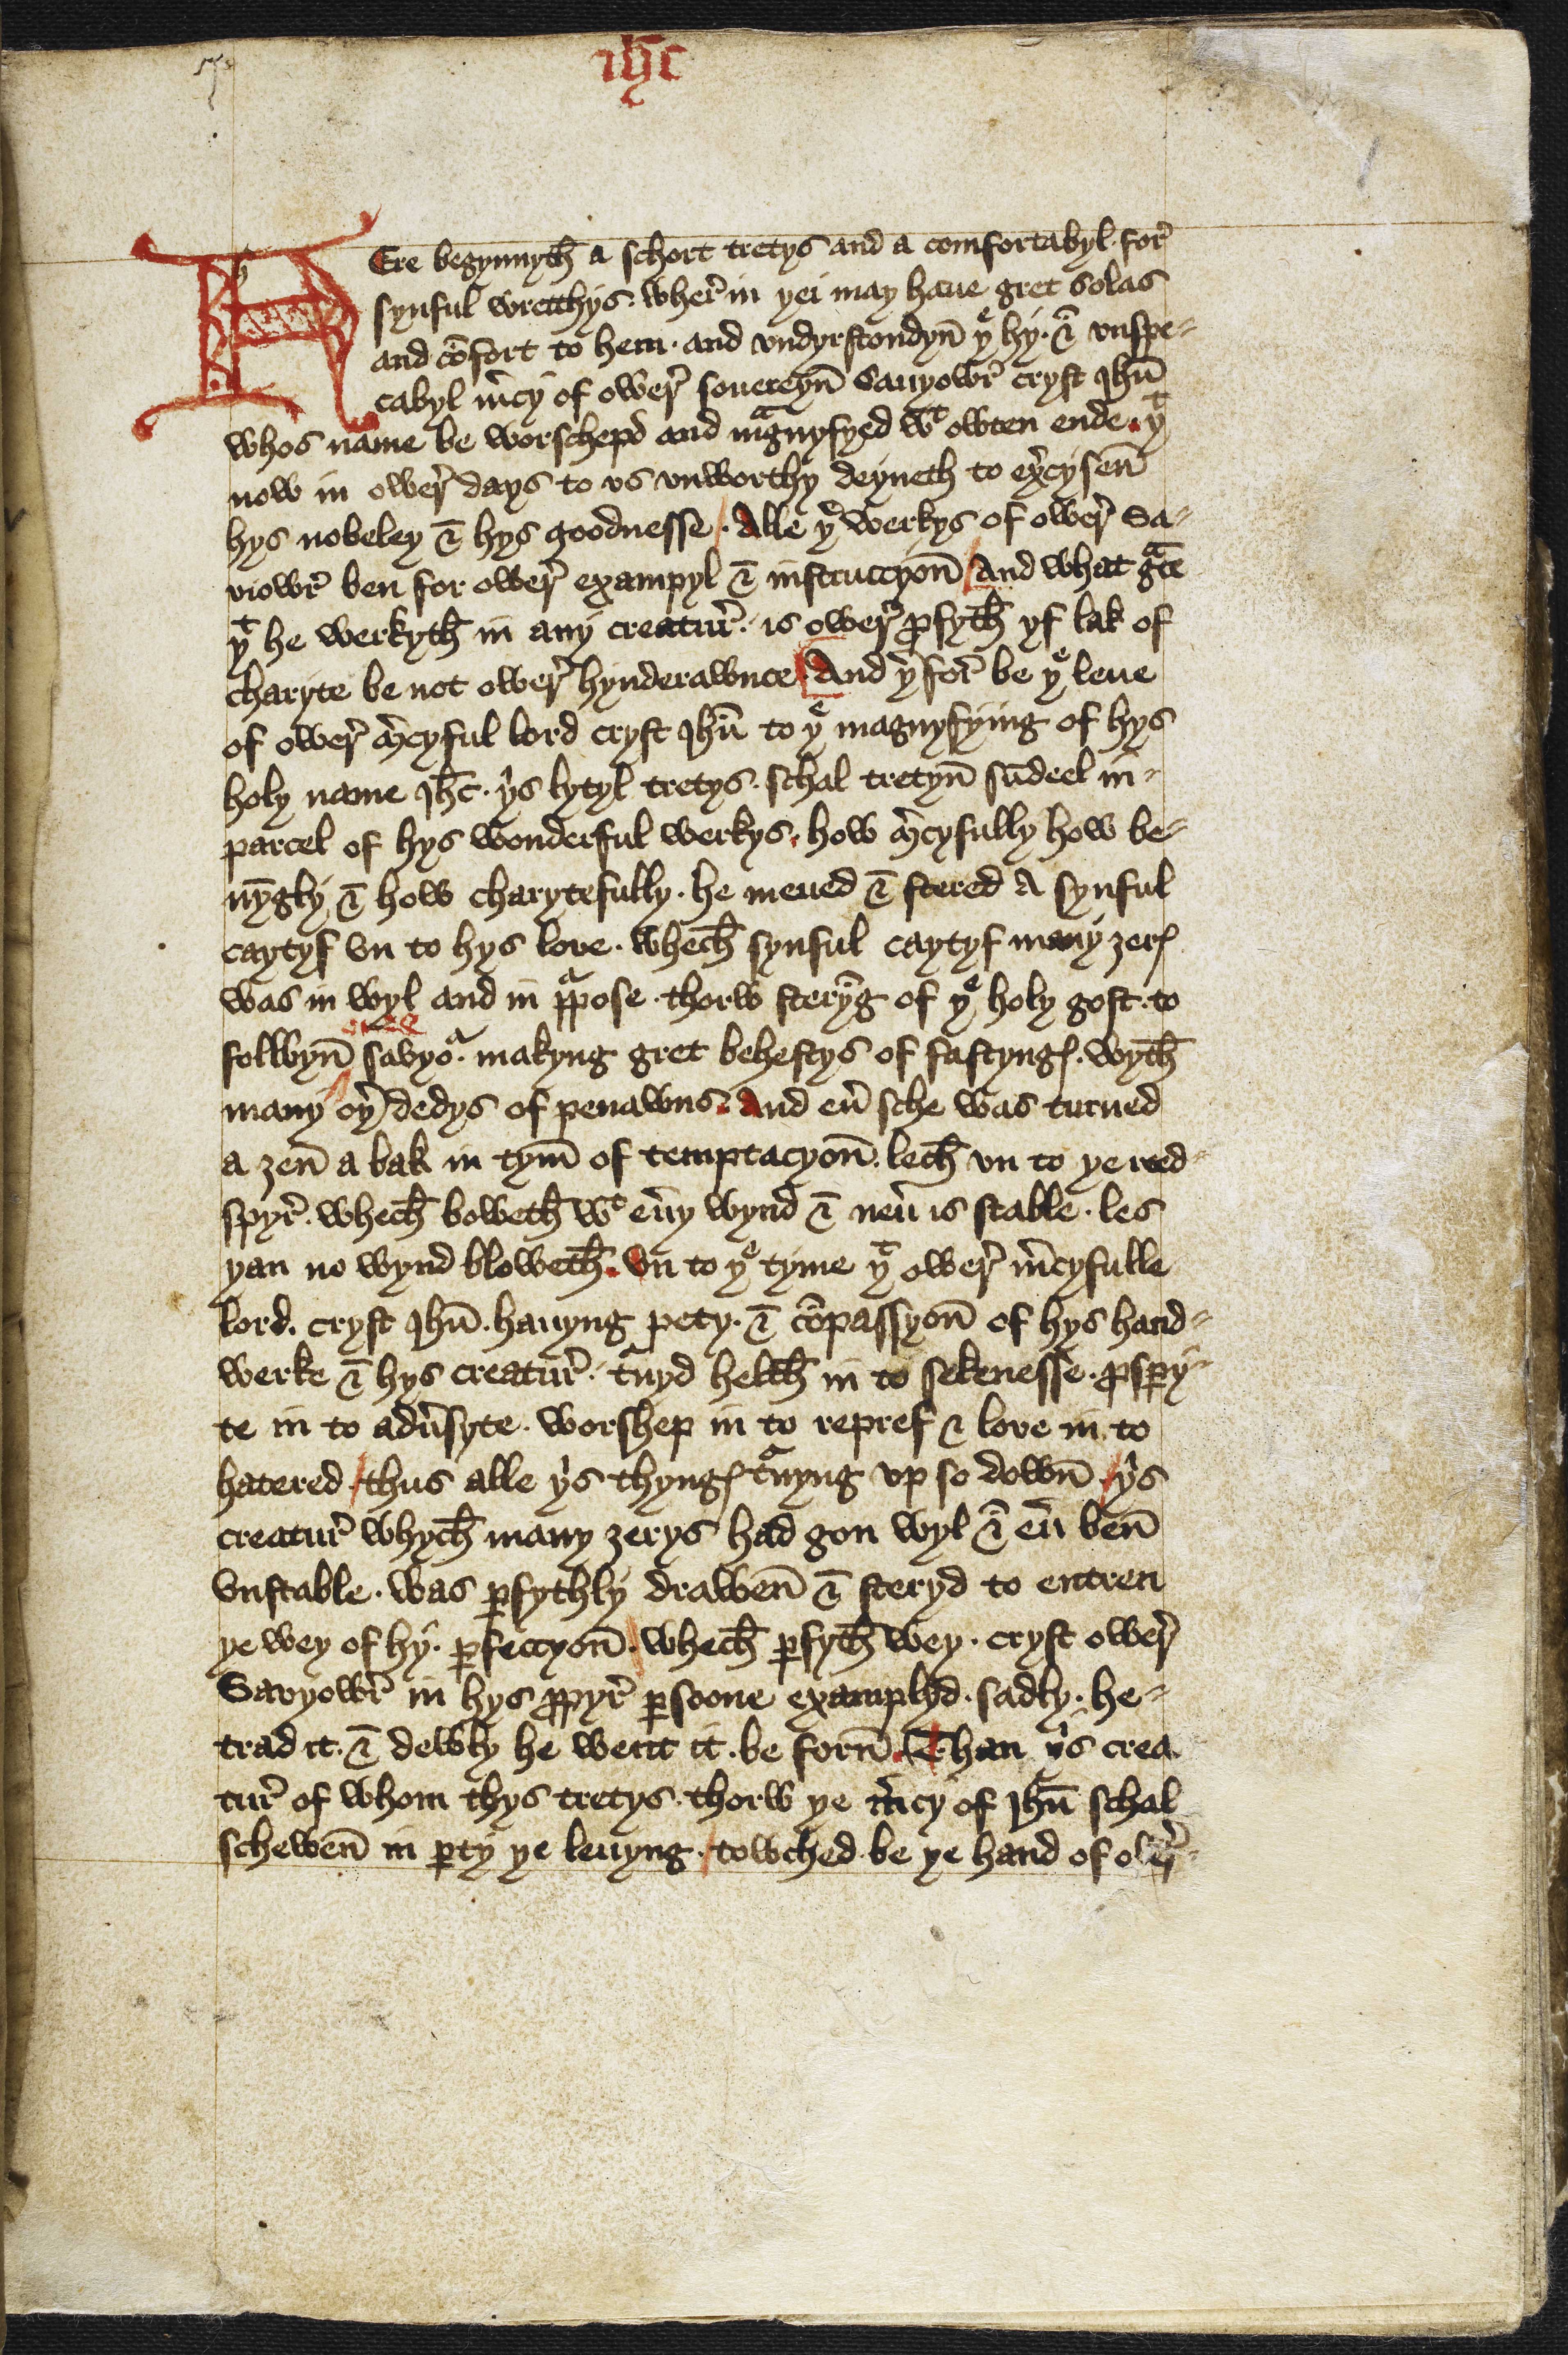 ihc
HEre begynnyth̄ a schort tretys and a comfortabyl for̉
synful wrecchys. wher̉ in yei may haue gret solas
and cōfort to hem. and vndyrstondyn̄ yͤ hy. & vnspe-
cabyl m̉cy of ower̉ souereyn̄ Sauyowr̉ cryst Ihū
whos name be worschepd and mᵃgnyfyed wᵗ owten ende. yᵗ
now in ower̉ days to vs vnworthy deyneth to ex̉cysen̄
hys nobeley & hys goodnesse. Alle yͤ werkys of ower̉ Sa-
viowr̉ ben for ower̉ exampyl & instruccyon̄ And what gᵃce
yᵗ he werkyth̄ in any creatur̉. is ower̉ ꝓfyth̄ yf lak of
charyte be not ower̉ hynderawnce. And ỷfor̉ be yͤ leue
of ower̉ m̉cyful lord cryst Ihū to yͤ magnyfying of hys
holy name Ihc̄. yⁱs lytyl tretys. schal tretyn̄ sūdeel in-
parcel of hys wonderful werkys. how m̉cyfully how be-
nȳgly & how charytefully. he meued & stered A synful
caytyf vn to hys love. whech̄ synful caytyf many zerꝭ
was in wyl and in ꝑpose. thorw sterȳg of yͤ holy gost. to
folwyn̄ oure savyoᵘr. makyng gret behestys of fastyngꝭ. wyth̄
many oỷ dedys of penawns. And eủ sche was turned
a zen̄ a bak in tym̄ of temptacyon̄. lech̄ vn to ye reed-
spyr̉. whech̄ boweth̄ wᵗ eủy wynd & neủ is stable. les
yan no wynd bloweth̄. vn to yͤ tyme yᵗ ower̉ m̉cyfulle
lord. cryst Ihū. hauyng pety. & cōpassyon̄ of hys hand-
werke & hys creatur̉. tᵘrnyd helth̄ in to sekenesse. ꝓspỷ-
te in to adủsyte. worshep in to repref & love in to
hatered. thus alle yⁱs thyngꝭ tᵘrnyng vp so down̄. yⁱs
creatur̉ whych̄ many zerys had gon wyl & eủ ben̄
vnstable. was ꝑfythly drawen̄ & steryd to entren
ye wey of hy. ꝑfeccyon̄. whech̄ ꝑfyth̄ wey. cryst ower̉
Savyowr̉ in hys ꝓpyr̉ ꝑsoone examplyd. sadly. he-
trad it. & dewly he went it. be forn̄. Than yⁱs crea
tur̉ of whom thys tretys. thorw ye m̉cy of Ihū schal
schewen̄ in ꝑty ye leuyng. towched be ye hand of ower̉